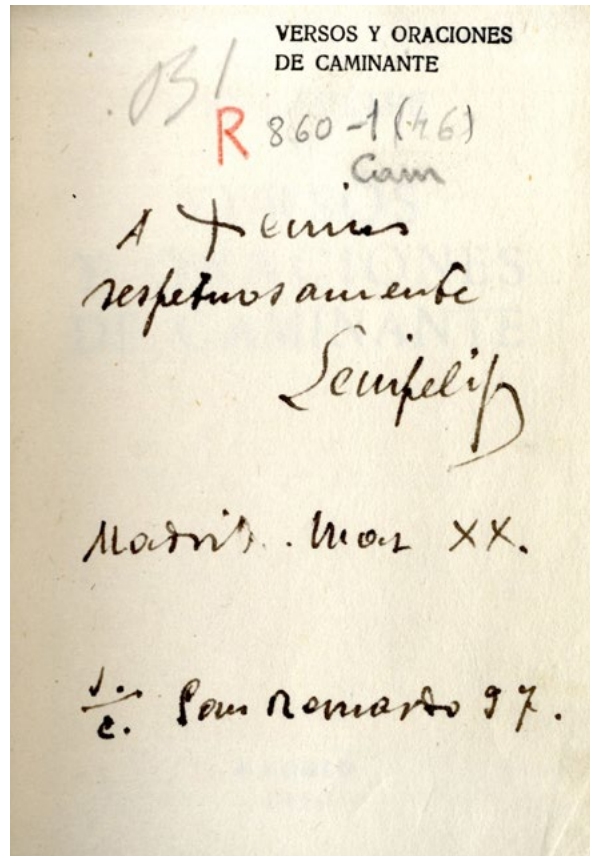 VERSOS Y ORACIONES
DE CAMINANTE
R 860-1(46)
Cam
A Xenius
respetuosamente
Leinfelip
Madrid. Mar XX.
s/c. San Bernardo 97.